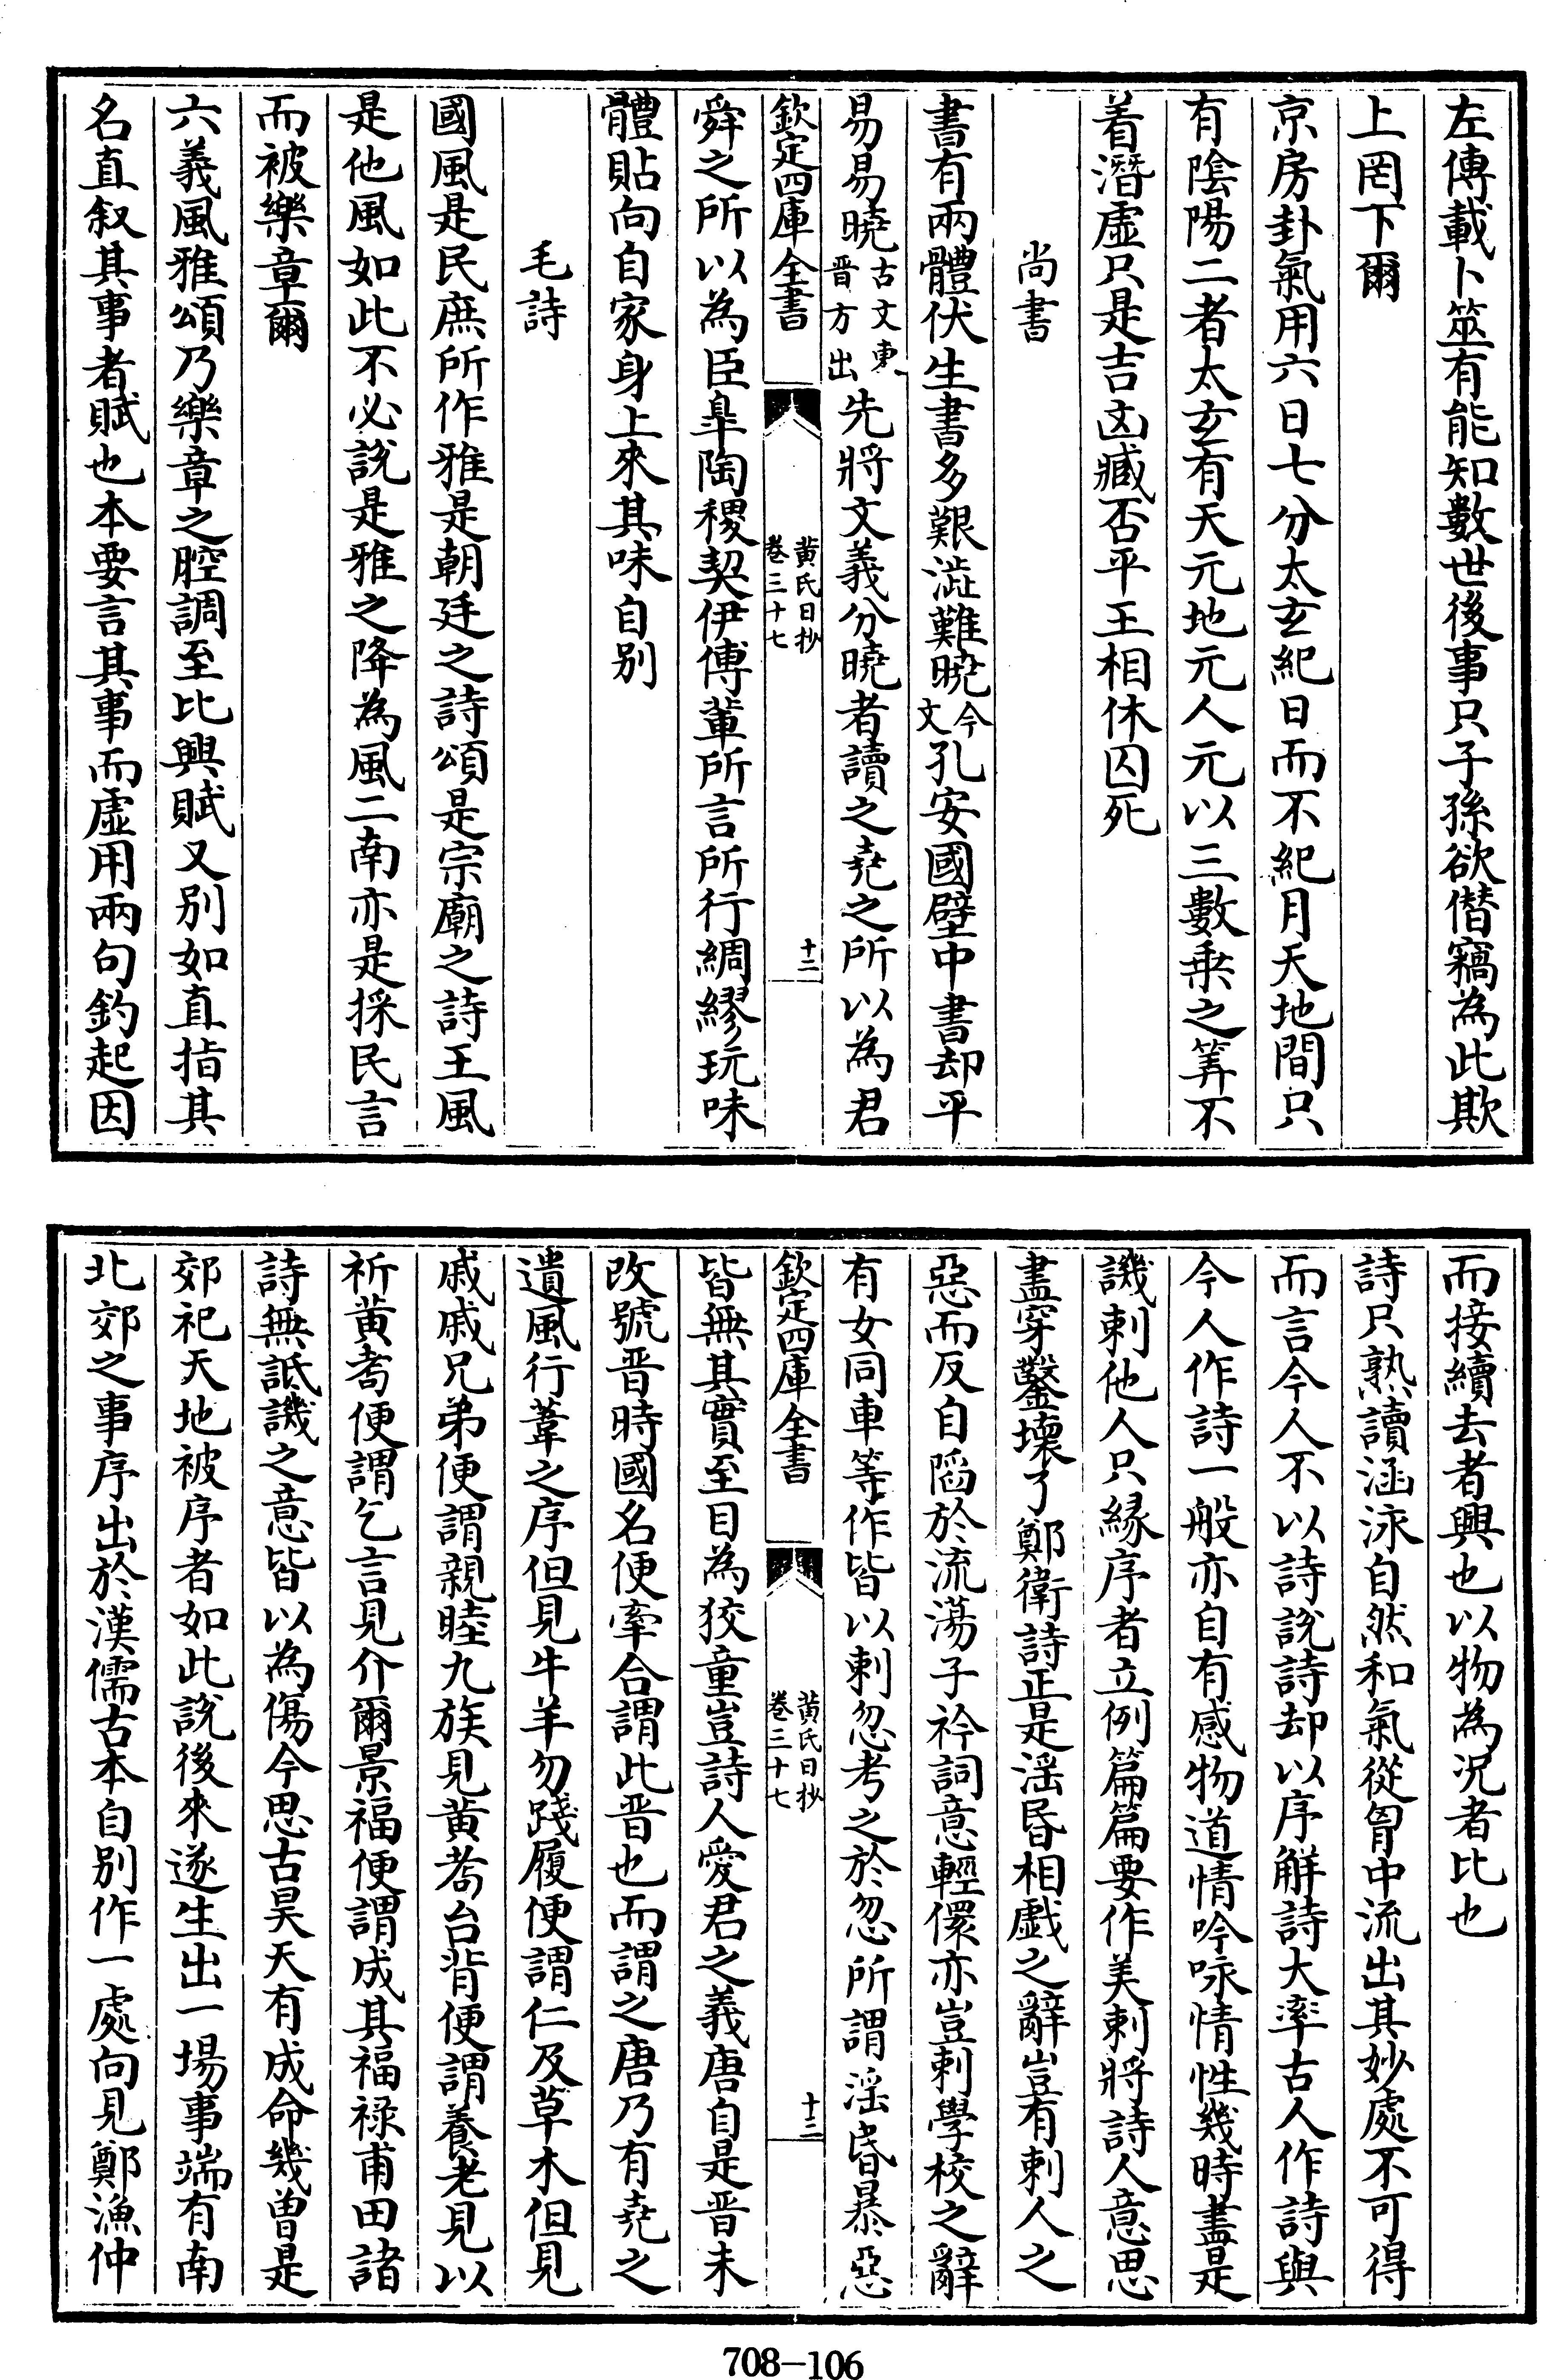 左傳載卜筮有能知數世後事只子孫欲僭竊為此欺
上罔下爾
京房卦氣用六日七分太玄紀日而不紀月天地間只
有陰陽二者太玄有天元地元人元以三數乘之筭不
着潛虛只是吉凶臧否平王相休囚死
尚書
書有兩體伏生書多艱澁難曉今文孔安國壁中書却平
易易曉古文東晉方出先將文義分曉者讀之堯之所以為君
欽定四庫全書
黃氏日抄
卷三十七
十二
舜之所以為臣臯陶稷契伊傅輩所言所行綢繆玩味
體貼向自家身上來其味自别
毛詩
國風是民庶所作雅是朝廷之詩頌是宗廟之詩王風
是他風如此不必說是雅之降為風二南亦是採民言
而被樂章爾
六義風雅頌乃樂章之腔調至比興賦又别如直指其
名直叙其事者賦也本要言其事而虛用兩句釣起因
而接續去者興也以物為况者比也
詩只熟讀涵泳自然和氣從胷中流出其妙處不可得
而言今人不以詩說詩却以序解詩大率古人作詩與
今人作詩一般亦自有感物道情吟咏情性幾時盡是
譏刺他人只緣序者立例篇篇要作美刺將詩人意思
盡穿鑿壞了鄭衛詩正是滛昏相戲之辭豈有刺人之
惡而反自䧟於流蕩子衿詞意輕儇亦豈刺學校之辭
有女同車等作皆以刺忽考之於忽所謂滛昏暴惡
欽定四庫全書
黃氏日抄
卷三十七
十三
皆無其實至目為狡童豈詩人愛君之義唐自是晉未
改號晉時國名便牽合謂此晉也而謂之唐乃有堯之
遺風行葦之序但見牛羊勿踐履便謂仁及草木但見
戚戚兄弟便謂親睦九族見黃耈台背便謂養老見以
祈黃耈便謂乞言見介爾景福便謂成其福祿甫田諸
詩無詆譏之意皆以為傷今思古昊天有成命幾曾是
郊祀天地被序者如此說後來遂生出一場事端有南
北郊之事序出於漢儒古本自别作一處向見鄭漁仲
708-106